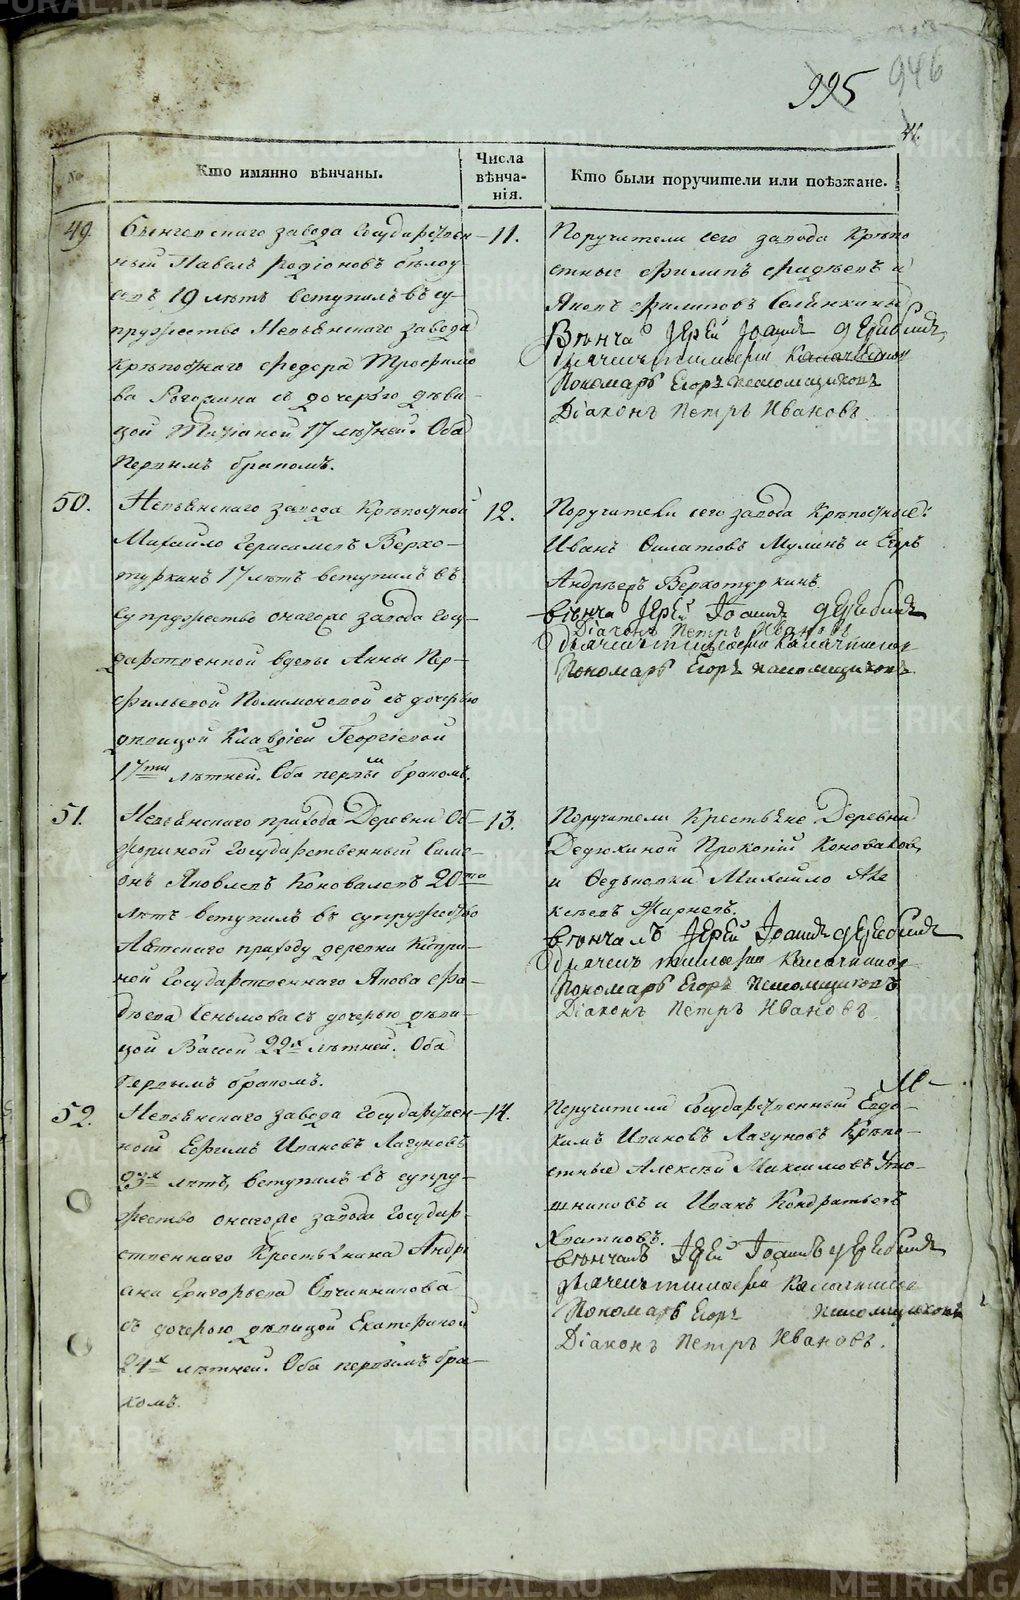 995
946
№
Кто имянно вѣнчаны.
Числа
вѣнча-
нія.
Кто были поручители или поѣзжане.
49.
заведа Государствен-
ный Павелъ Родіоновъ
19 лѣтъ вступилъ въ су-
пружество Невьянскаго завода
крѣпостнаго Федора Трофимо-
ва съ дочерью дѣви-
цой Татіаной 17 лѣтней. Оба
первымъ бракомъ.
11.
Поручители сего завода Крѣпо
стные Филипъ и
Яковъ Филиповъ
Вѣнча Іерей Іоаннъ
Пономарь Егоръ
Діаконъ Петръ Ивановъ
50.
Невьянскаго завода Крѣпостной
Михайло Герасимовъ Верхо-
туркинъ 17 лѣтъ вступилъ въ
супружество онагоже завода Госу-
дарственной вдовы Анны Пер-
фильевой съ дочерью
дѣвицой Клавдіей Георгіевой
17ти лѣтней. Оба первымъ бракомъ.
12.
Поручители сего завода Крѣпостные:
Иванъ Мулинъ и Егоръ
Андрѣевъ Верхотуркинъ.
вѣнча Іерей Іоаннъ
Діаконъ Петръ Ивановъ
Пономарь Егоръ
51.
Невьянскаго прихода Деревни
Государственный Симе-
онъ Яковлевъ Коновалевъ 20ти
лѣтъ вступилъ въ супружество
приходу деревни
ной Государственнаго Якова Фа-
дѣева съ дочерью дѣви-
цой Вассой 22х лѣтней. Оба
первымъ бракомъ.
13.
Поручители Крестьяне Деревни
Дедюхиной Прокопій Коноваловъ,
и Михайло Але
ксѣевъ
вѣнчалъ Іерей Іоаннъ
Пономарь Егоръ
Діаконъ Петръ Ивановъ
52.
Невьянскаго завода Государствен-
ный Ефимъ Ивановъ Лагуновъ
23х лѣтъ, вступилъ въ супру-
жество онагоже завода Государ-
ственнаго Крестьянина Андрі
ана Григорьева Овчинникова
съ дочерью дѣвицой Екатериной
24х лѣтней. Оба первымъ бра-
комъ.
14.
Поручители Государственный Евдо-
кимъ Ивановъ Лагуновъ Крѣпо-
стные Алексѣй Максимовъ
и Иванъ Кондратьевъ
вѣнчалъ Іерей Іоаннъ
Пономарь Егоръ
Діаконъ Петръ Ивановъ.
METRIKI.GASO-URAL.RU